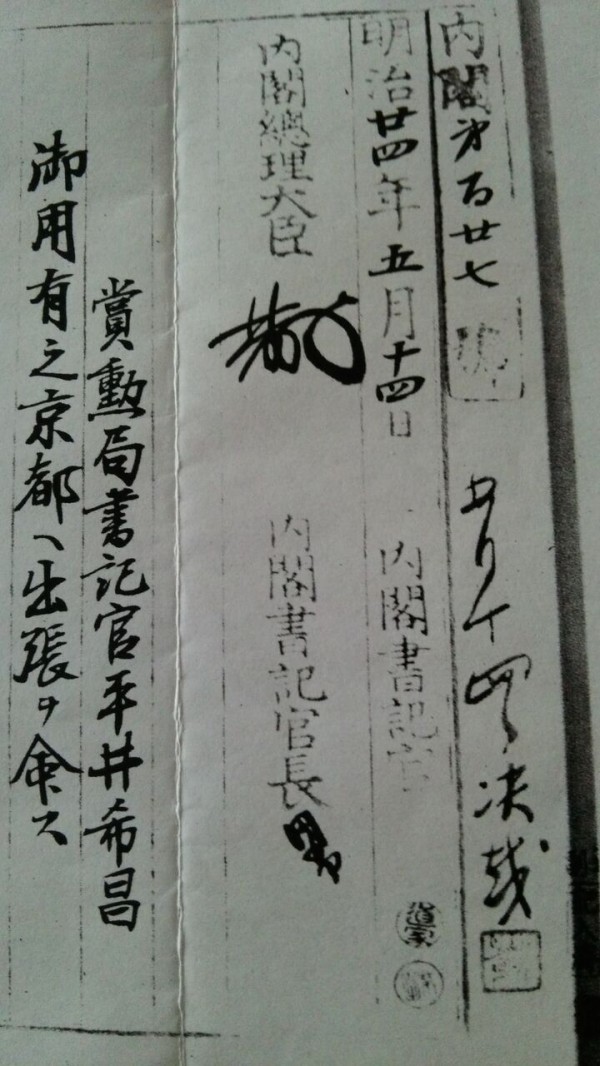 内閣第百廿七號
五月十四日決裁
明治廿四年五月十四日
内閣書記官
内閣總理大臣
内閣書記官長
賞勲局書記官平井希昌
御用有之京都ヘ出張ヲ命ス